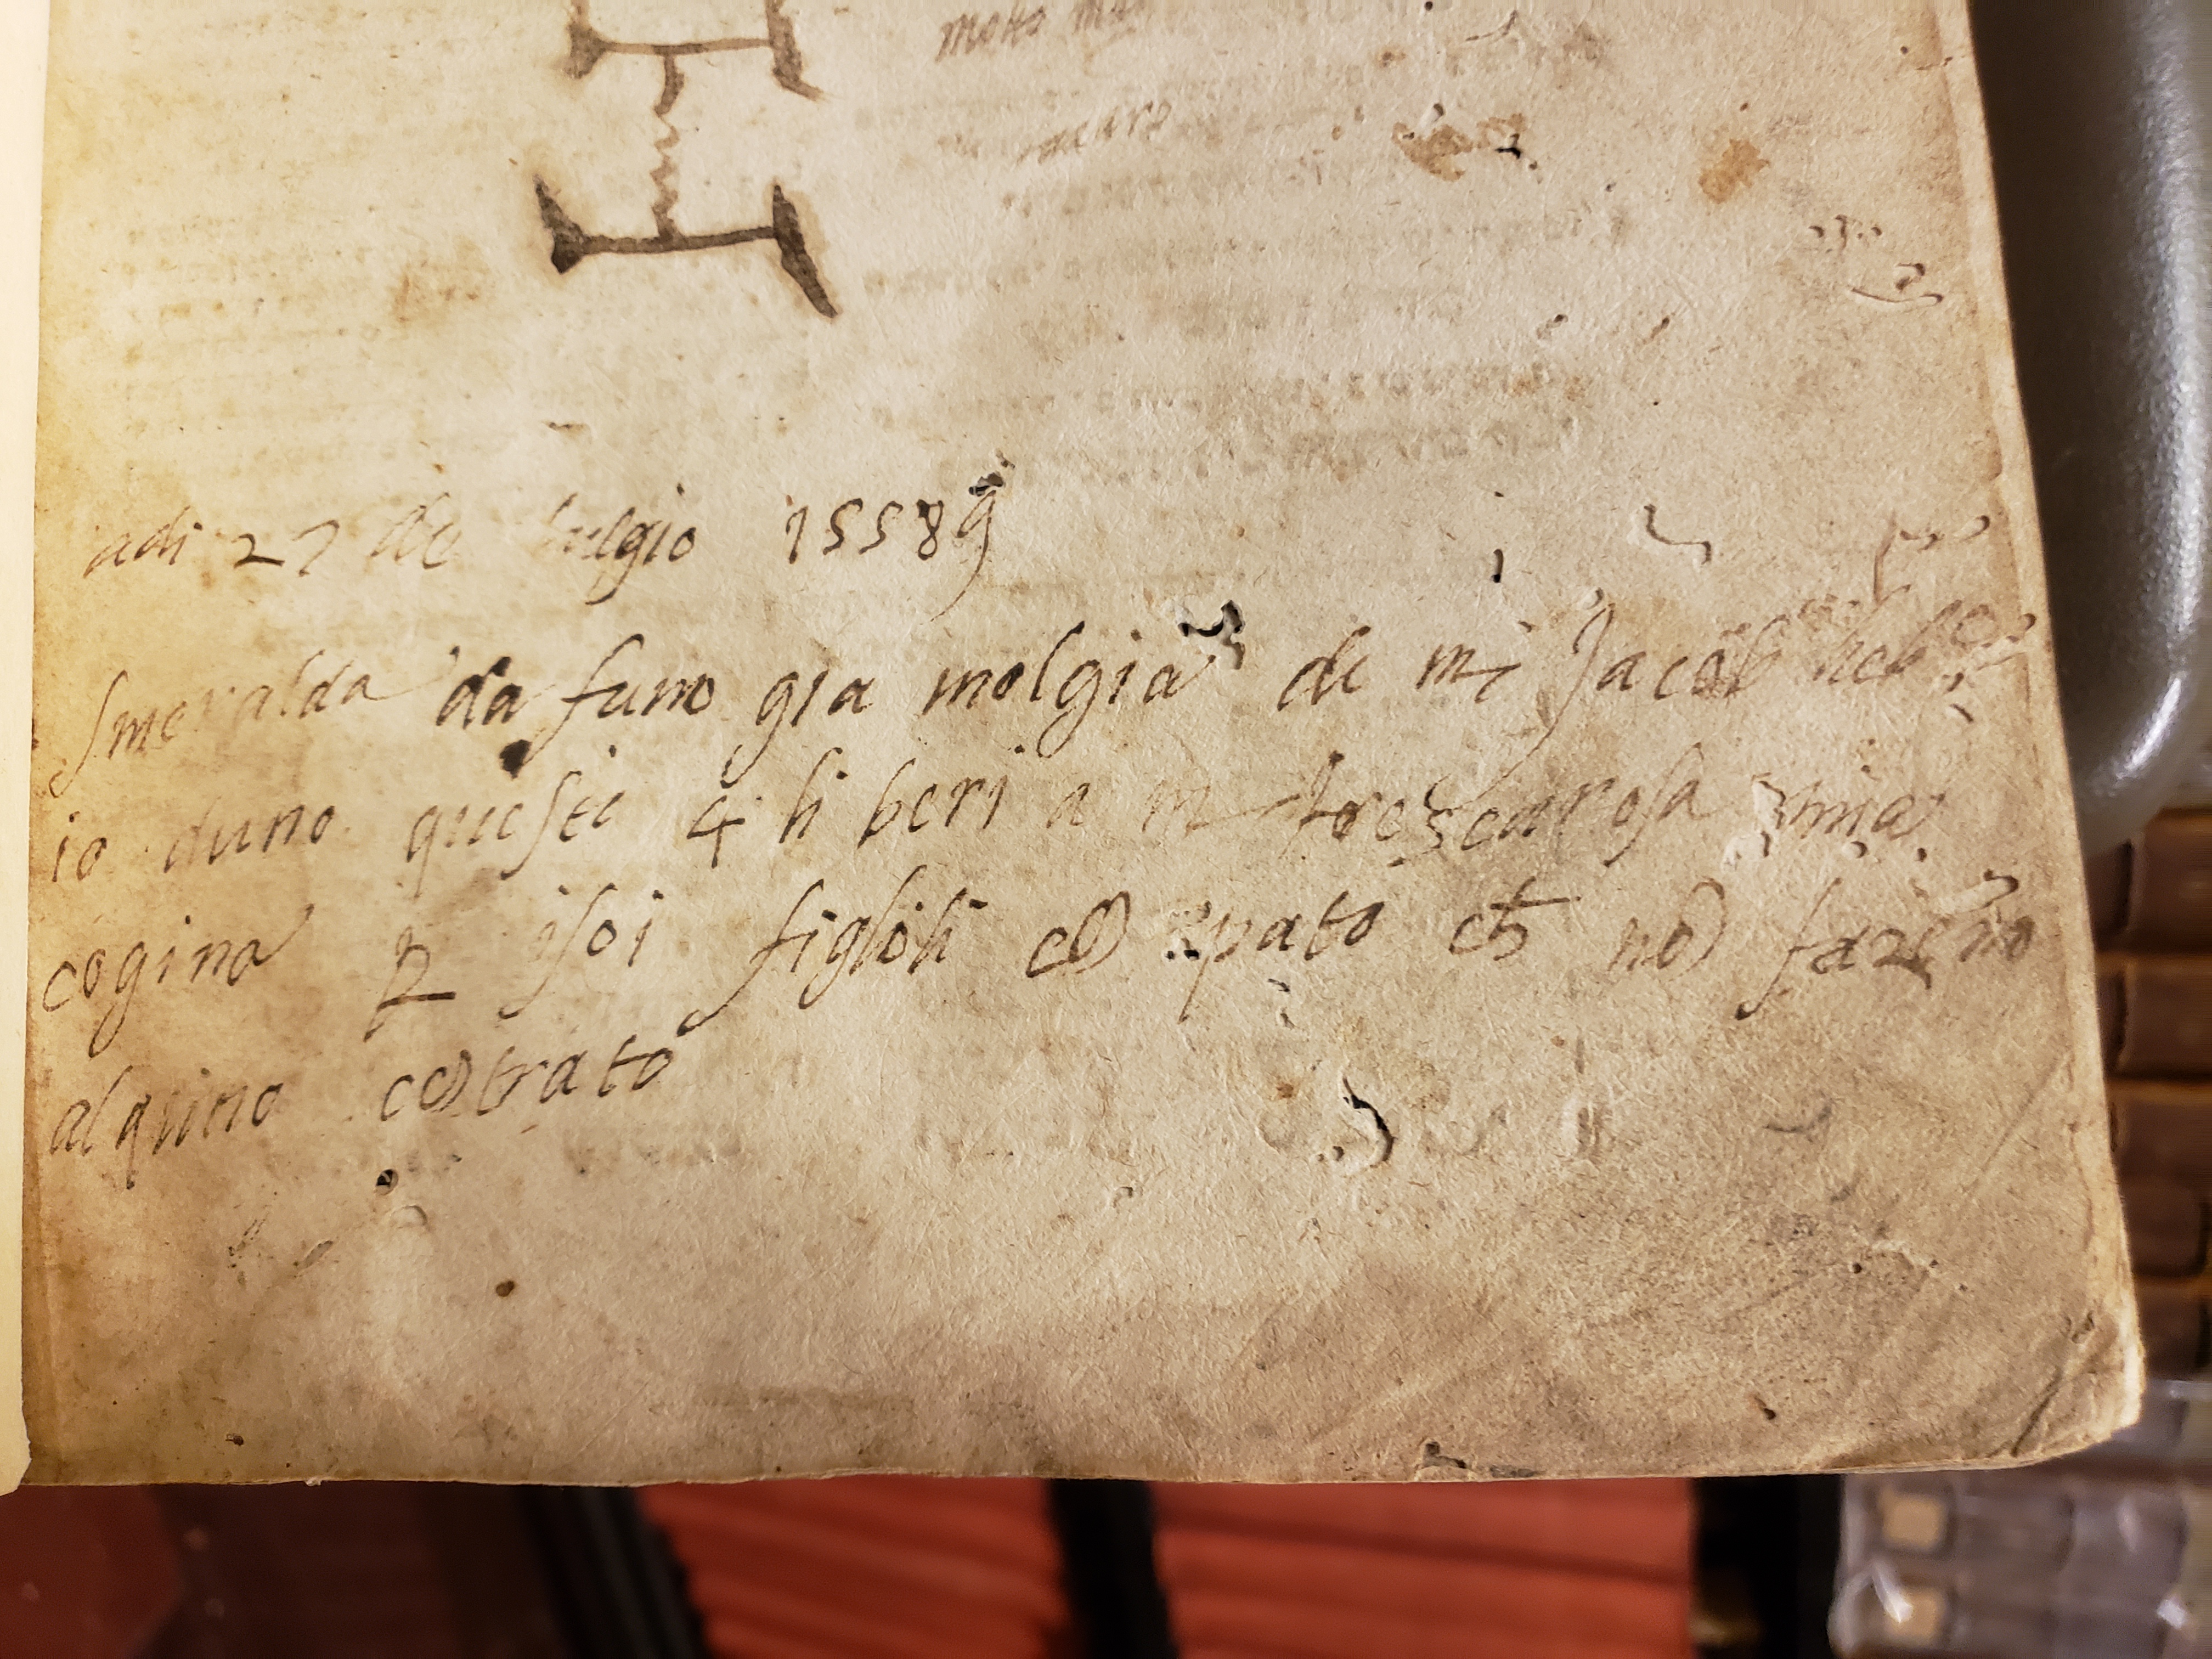 motto
adi 27 de lulgio 15589
Smeralda da fumo gia molgia de mi Jacob heb
io duno queste 4 li beri a m mia
cogina p isoi figlioli cō pato ch nō fazeno
alquino cōtrato